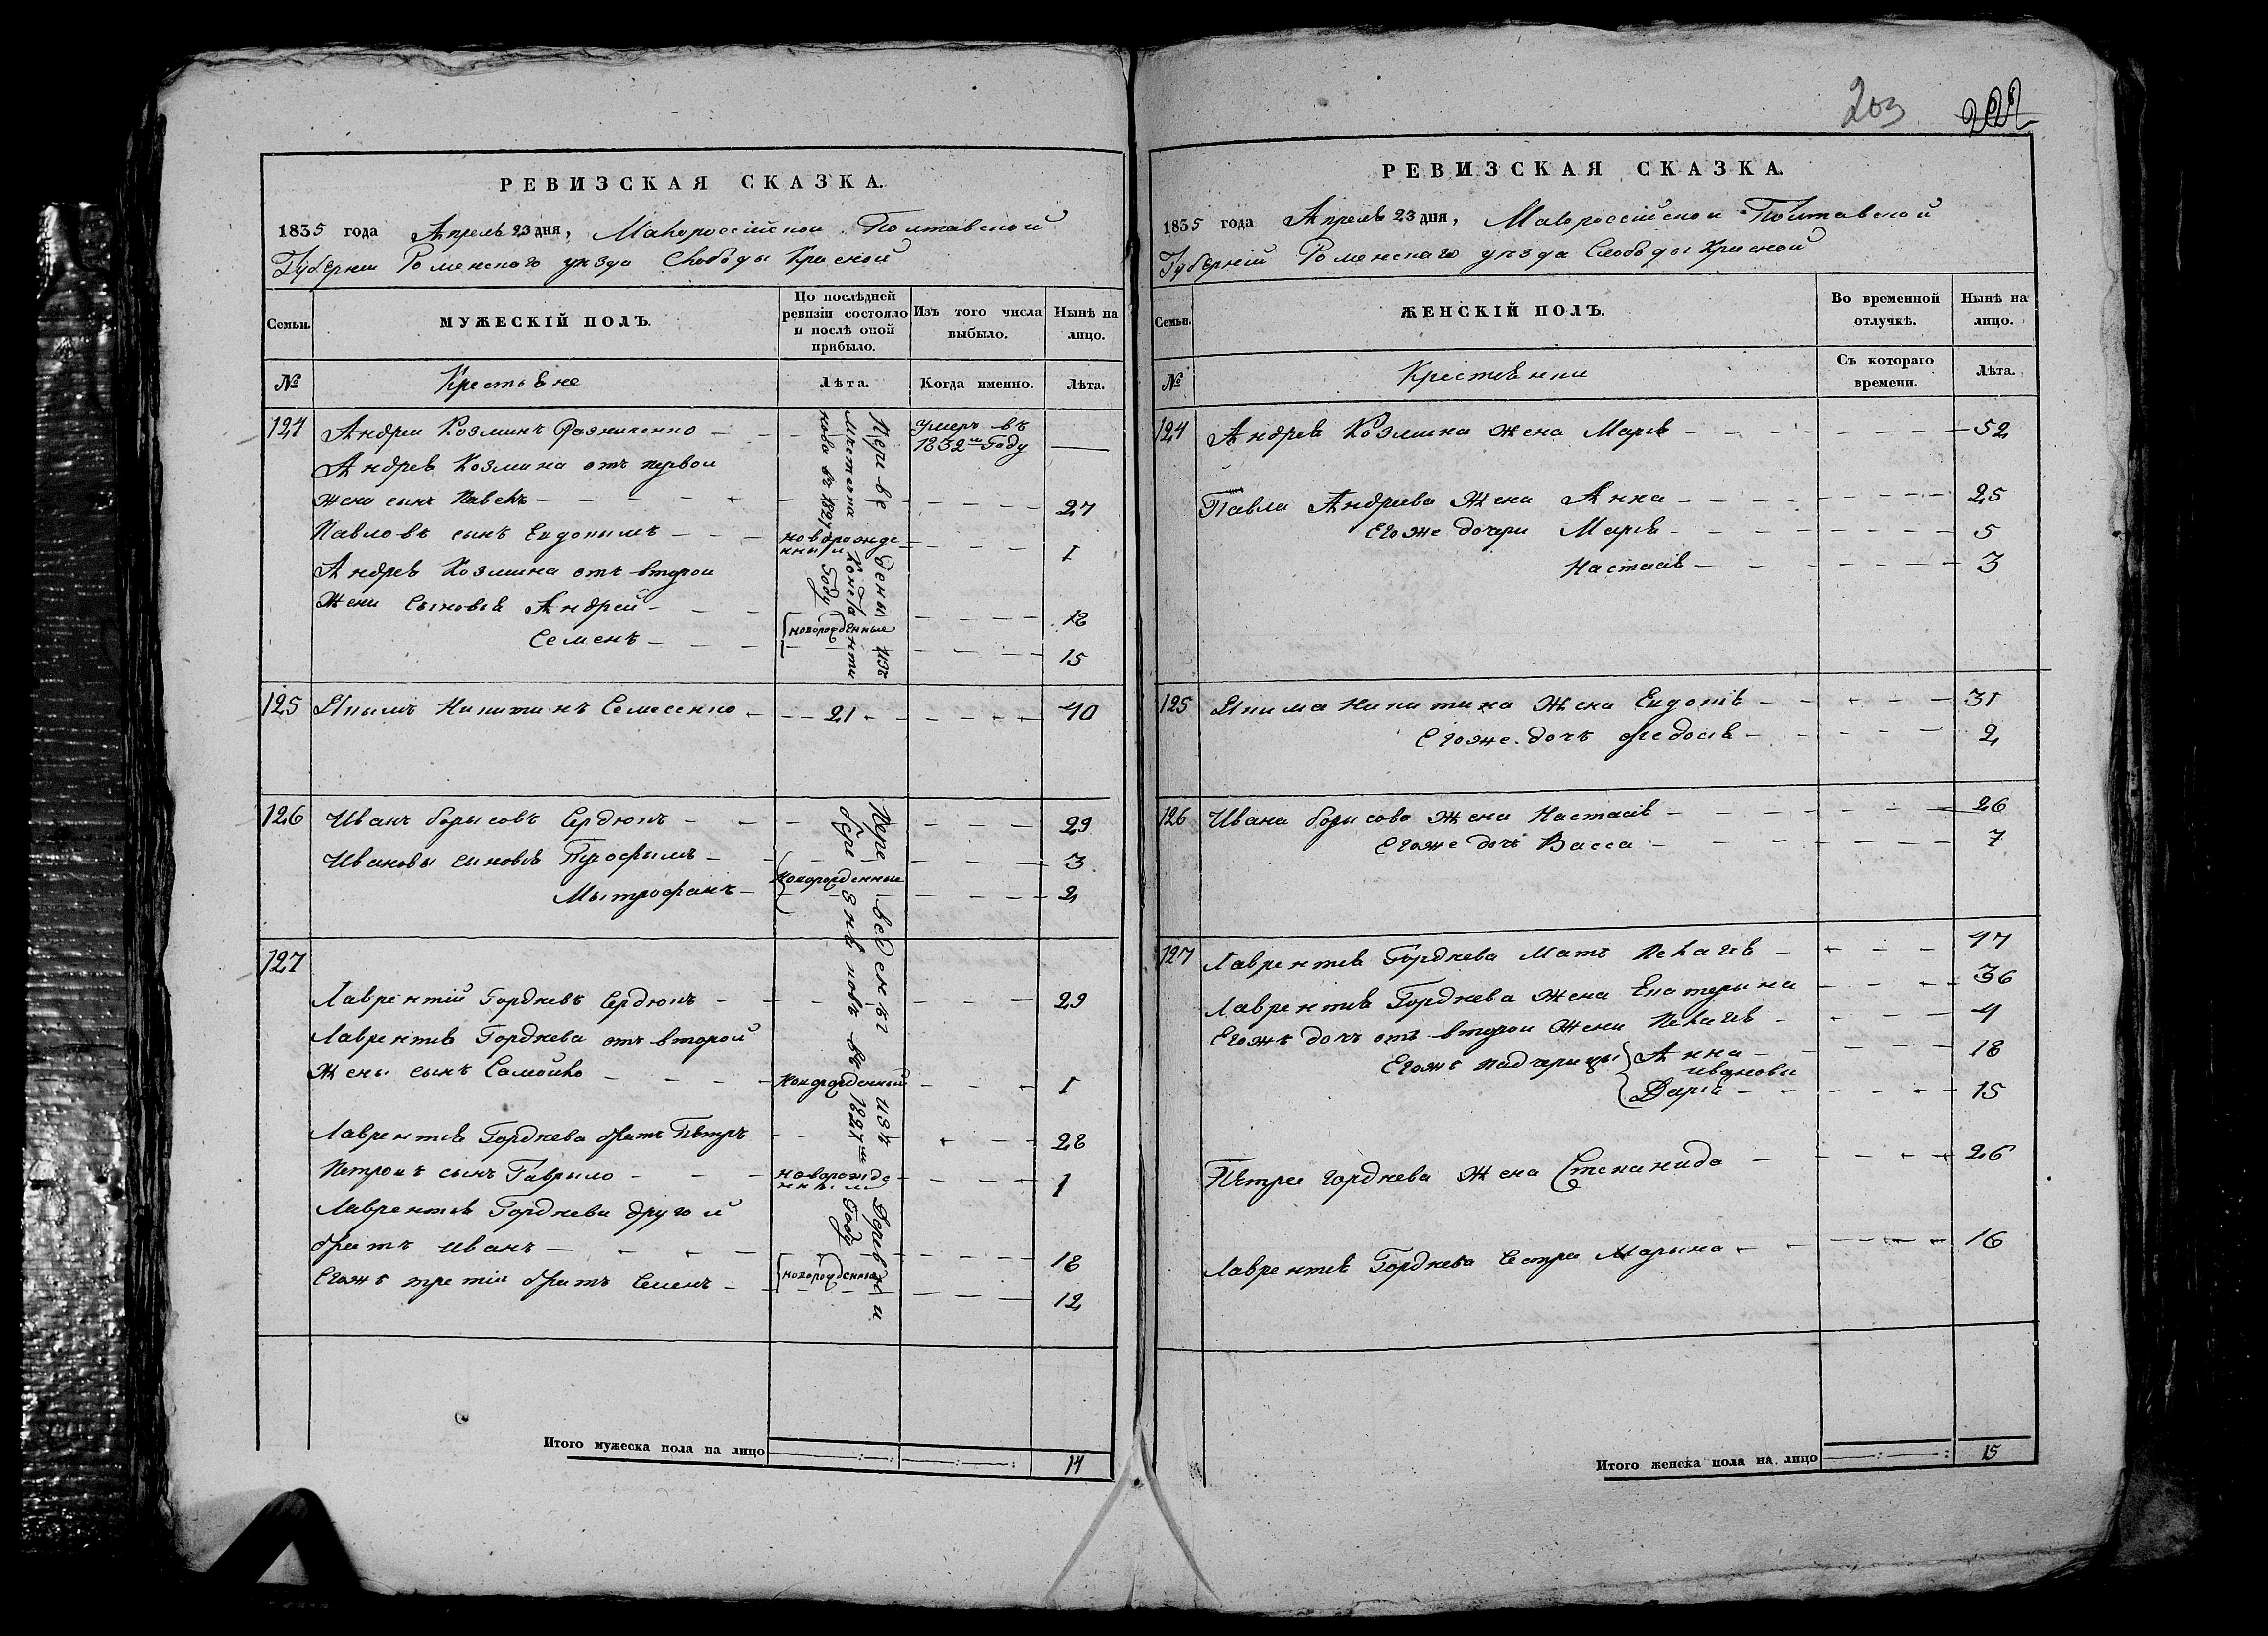 203 202
РЕВИЗСКАЯ СКАЗКА.
1835 года Апреля 23 дня, Малороссійской Полтавской
Губерніи Роменского уезда Слободы Красной
Семьи.
МУЖЕСКІЙ ПОЛЪ.
По послѣдней ревизіи состояло и послѣ оной прибыло.
Изъ того числа выбыло.
Нынѣ на лицо.
№
Крестьяне
Лѣта.
Когда именно.
Лѣта.
124 Андрей Козминъ — — умеръ въ 1832мъ Году —
Андрея Козмина отъ первой
жени сынъ Павелъ — — — 27
Павловъ сынъ Евдокимъ — — новорожденный — — 1
Андрея Козмина отъ второй
Жени Сыновья Андрей — — — 18
Семенъ — — {новорожденные — — 15
Переведены изъ
местечка Константи
нова въ 1827 Году
125 Якимъ Никитинъ — 21 — — 40
126 Иванъ борисовъ Сердюкъ — — — 29
Ивановы синовья Трофымъ — — — 3
Мытрофанъ — {Новорожденные — — 2
127
Лаврентій Гордѣевъ Сердюкъ — — — 29
Лаврентія Гордѣева отъ второй
Жены сынъ Самойло — — Новорожденный — — 1
Лаврентія Гордѣева братъ Пѣтръ — — 28
Петровъ сынъ Гаврыло — — новорожденный — — 1
Лаврентія Гордѣева другой
братъ иванъ — — — — 18
Егожъ третій братъ Семенъ — {новорожденные — — 12
Переведены изъ Деревни
въ 1827мъ Году
Итого мужеска пола на лицо 14
РЕВИЗСКАЯ СКАЗКА.
1835 года Апреля 23 дня, Малороссійской Полтавской
Губѣрніи Роменскаго уезда Слободы Красной
Семьи.
ЖЕНСКІЙ ПОЛЪ.
Во временной отлучкѣ.
Нынѣ на лицо.
№
Крестьянки
Съ котораго времени.
Лѣта.
124 Андрея Козмина жена Маря — — — 52
Павла Андреева Жена Анна — — — 25
Егоже дочери Маря — — — 5
Настася — — — 3
125 Якима Никитина Жена Евдокія — — — 31
Егоже дочъ Федося — — — 2
126 Ивана борисова Жена Настася — — — 26
Егоже дочъ Васса — — — 7
127 Лаврентія Гордѣева Мать Пелагія — — — 47
Лаврентія Гордѣева Жена Екатерына — — — 36
Егожъ дочъ отъ второй Жени Пелагія — — — 4
Егожъ падчерицы {Анна — — — 18
ивановы
{Дарія — — — 15
Пѣтра гордѣева Жена Степанида — — — 26
Лаврентія Гордѣева Сестра Марына — — — 16
Итого женска пола на лицо 15